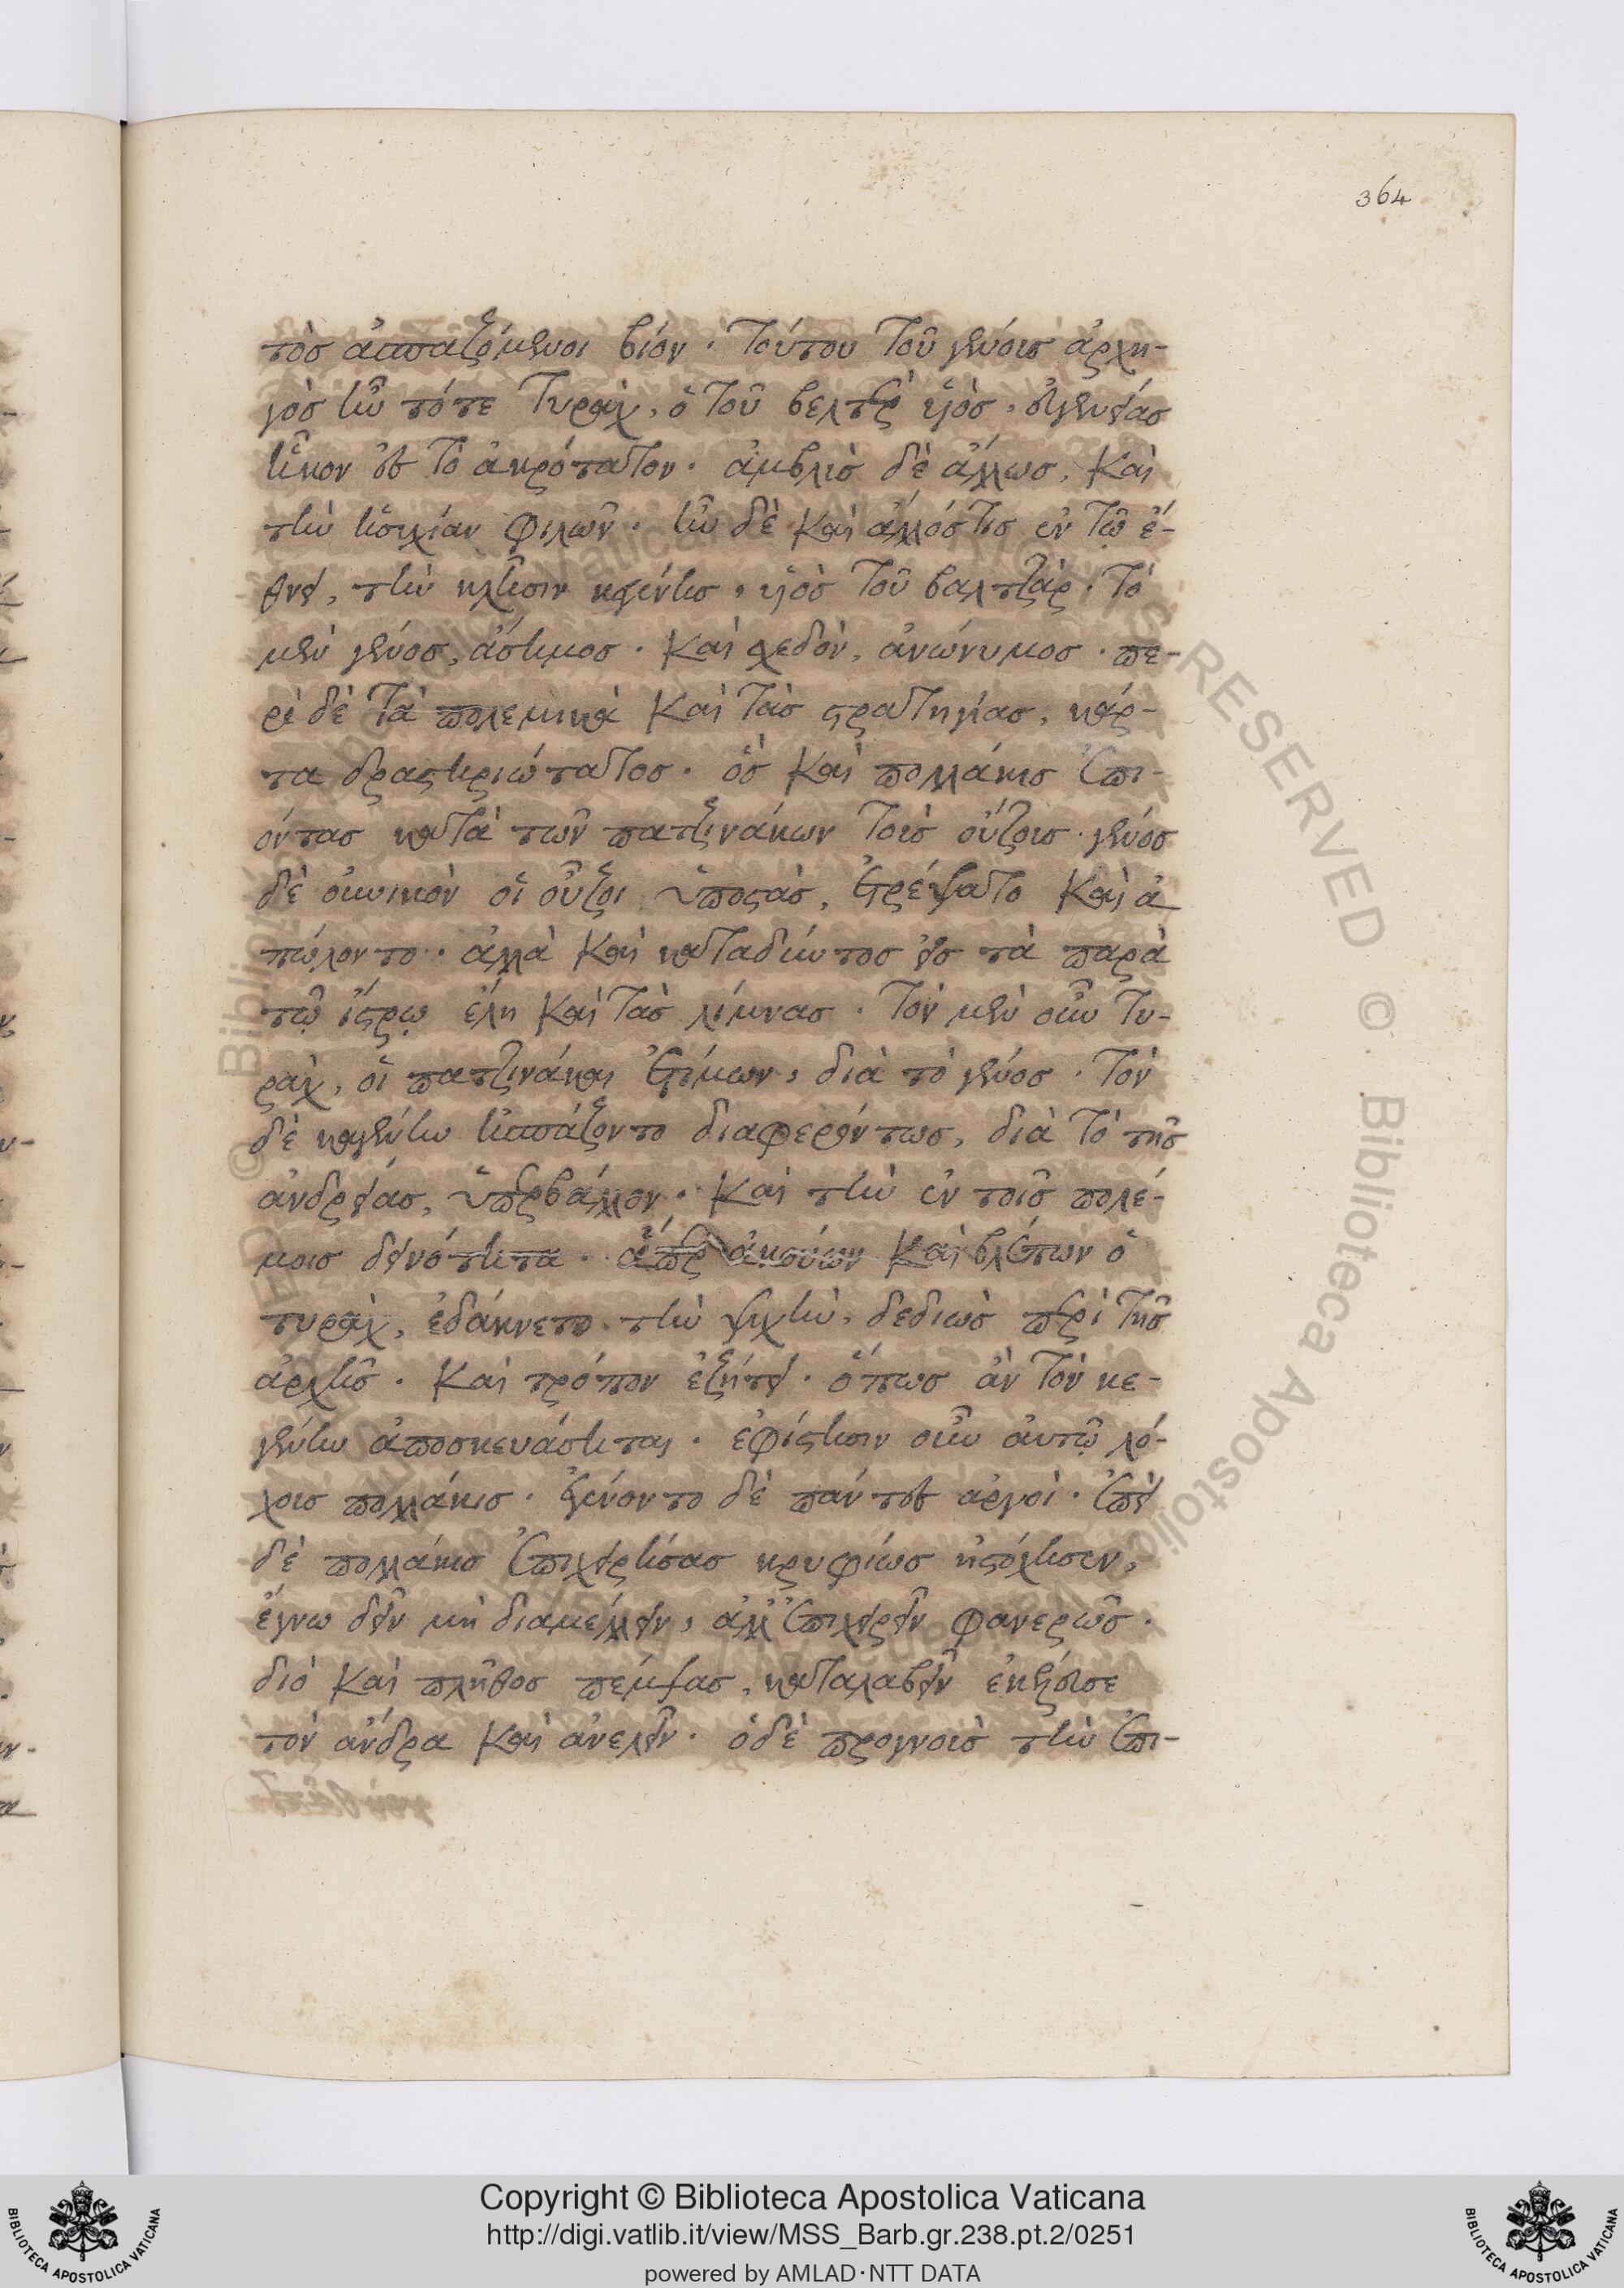 364
τὸσ ἀσπαζόμενοι βίον. τούτου τοῦ γένοισ ἀρχη-
γὸσ ἦν τότε τυρὰχ, ὁ τοῦ βελτὲρ υἱὸσ, εὐγενείας
ἧκον εἰσ τὸ ἀκρότατον. ἀμβλὺσ δὲ ἄλλωσ, καὶ
τὴν ἡσυχίαν φιλῶν. ἦν δὲ καὶ ἄλλόσ τισ ἐν τῷ ἔ-
θνει, τὴν κλῆσιν κεγένησ, υἱὸσ τοῦ βαλτζὰρ. τὸ
μὲν γένοσ, ἄσημοσ. καὶ σχεδὸν, ἀνώνυμοσ. πε-
ρὶ δὲ τὰ πολεμικὰ καὶ τὰσ στρατηγίασ, κάρ-
τα δραστηριώτατοσ. ὃσ καὶ πολλάκισ ἐπι-
όντασ κατὰ τῶν πατζινάκων τοὺσ οὔζουσ. γένοσ
δὲ οὐνικὸν οἱ οὖζοι ὑποστὰσ, ἐτρέψατο καὶ ἀ
πώλοντο. ἀλλὰ καὶ καταδύντοσ εἰσ τὰ παρὰ
τῷ ἴστρῳ ἕλη καὶ τὰσ λίμνασ. τὸν μὲν οὖν τυ-
ρὰχ, οἱ πατζινάκαι ἐτίμων, διὰ τὸ γένοσ. τὸν
δὲ καγένην ἠσπάζοντο διαφερόντωσ, διὰ τὸ τῆσ
ἀνδρείασ, ὑπερβάλλον. καὶ τὴν ἐν τοῖσ πολέ-
μοισ δεινότητα. ἅπερ ἀκούων καὶ βλέπων ὁ
τυρὰχ, ἐδάκνετο τὴν ψυχὴν, δεδιὼσ περὶ τῆσ
ἀρχῆσ. καὶ τρόπον ἐζήτει. ὅπωσ ἂν τὸν κε-
γένην ἀποσκευάσηται. ἐφίστησιν οὖν αὐτῷ λό-
χουσ πολλάκισ. ἐγένοντο δὲ πάντεσ ἀργοὶ. ἐπεὶ
δὲ πολλάκισ ἐπιχειρήσασ κρυφίωσ ἠστόχησεν,
ἔγνω δεῖν μὴ διαμέλλειν, ἀλλ᾽ ἐπιχειρεῖν φανερῶσ.
διὸ καὶ πλῆθοσ πέμψασ, καταλαβεῖν ἐκέλευσε
τὸν ἄνδρα καὶ ἀνελεῖν. ὁδὲ προγνοὺσ τὴν ἐπι-
Copyright © Biblioteca Apostolica Vaticana
http://digi.vatlib.it/view/MSS_Barb.gr.238.pt.2/0251
powered by AMLAD·NTT DATA